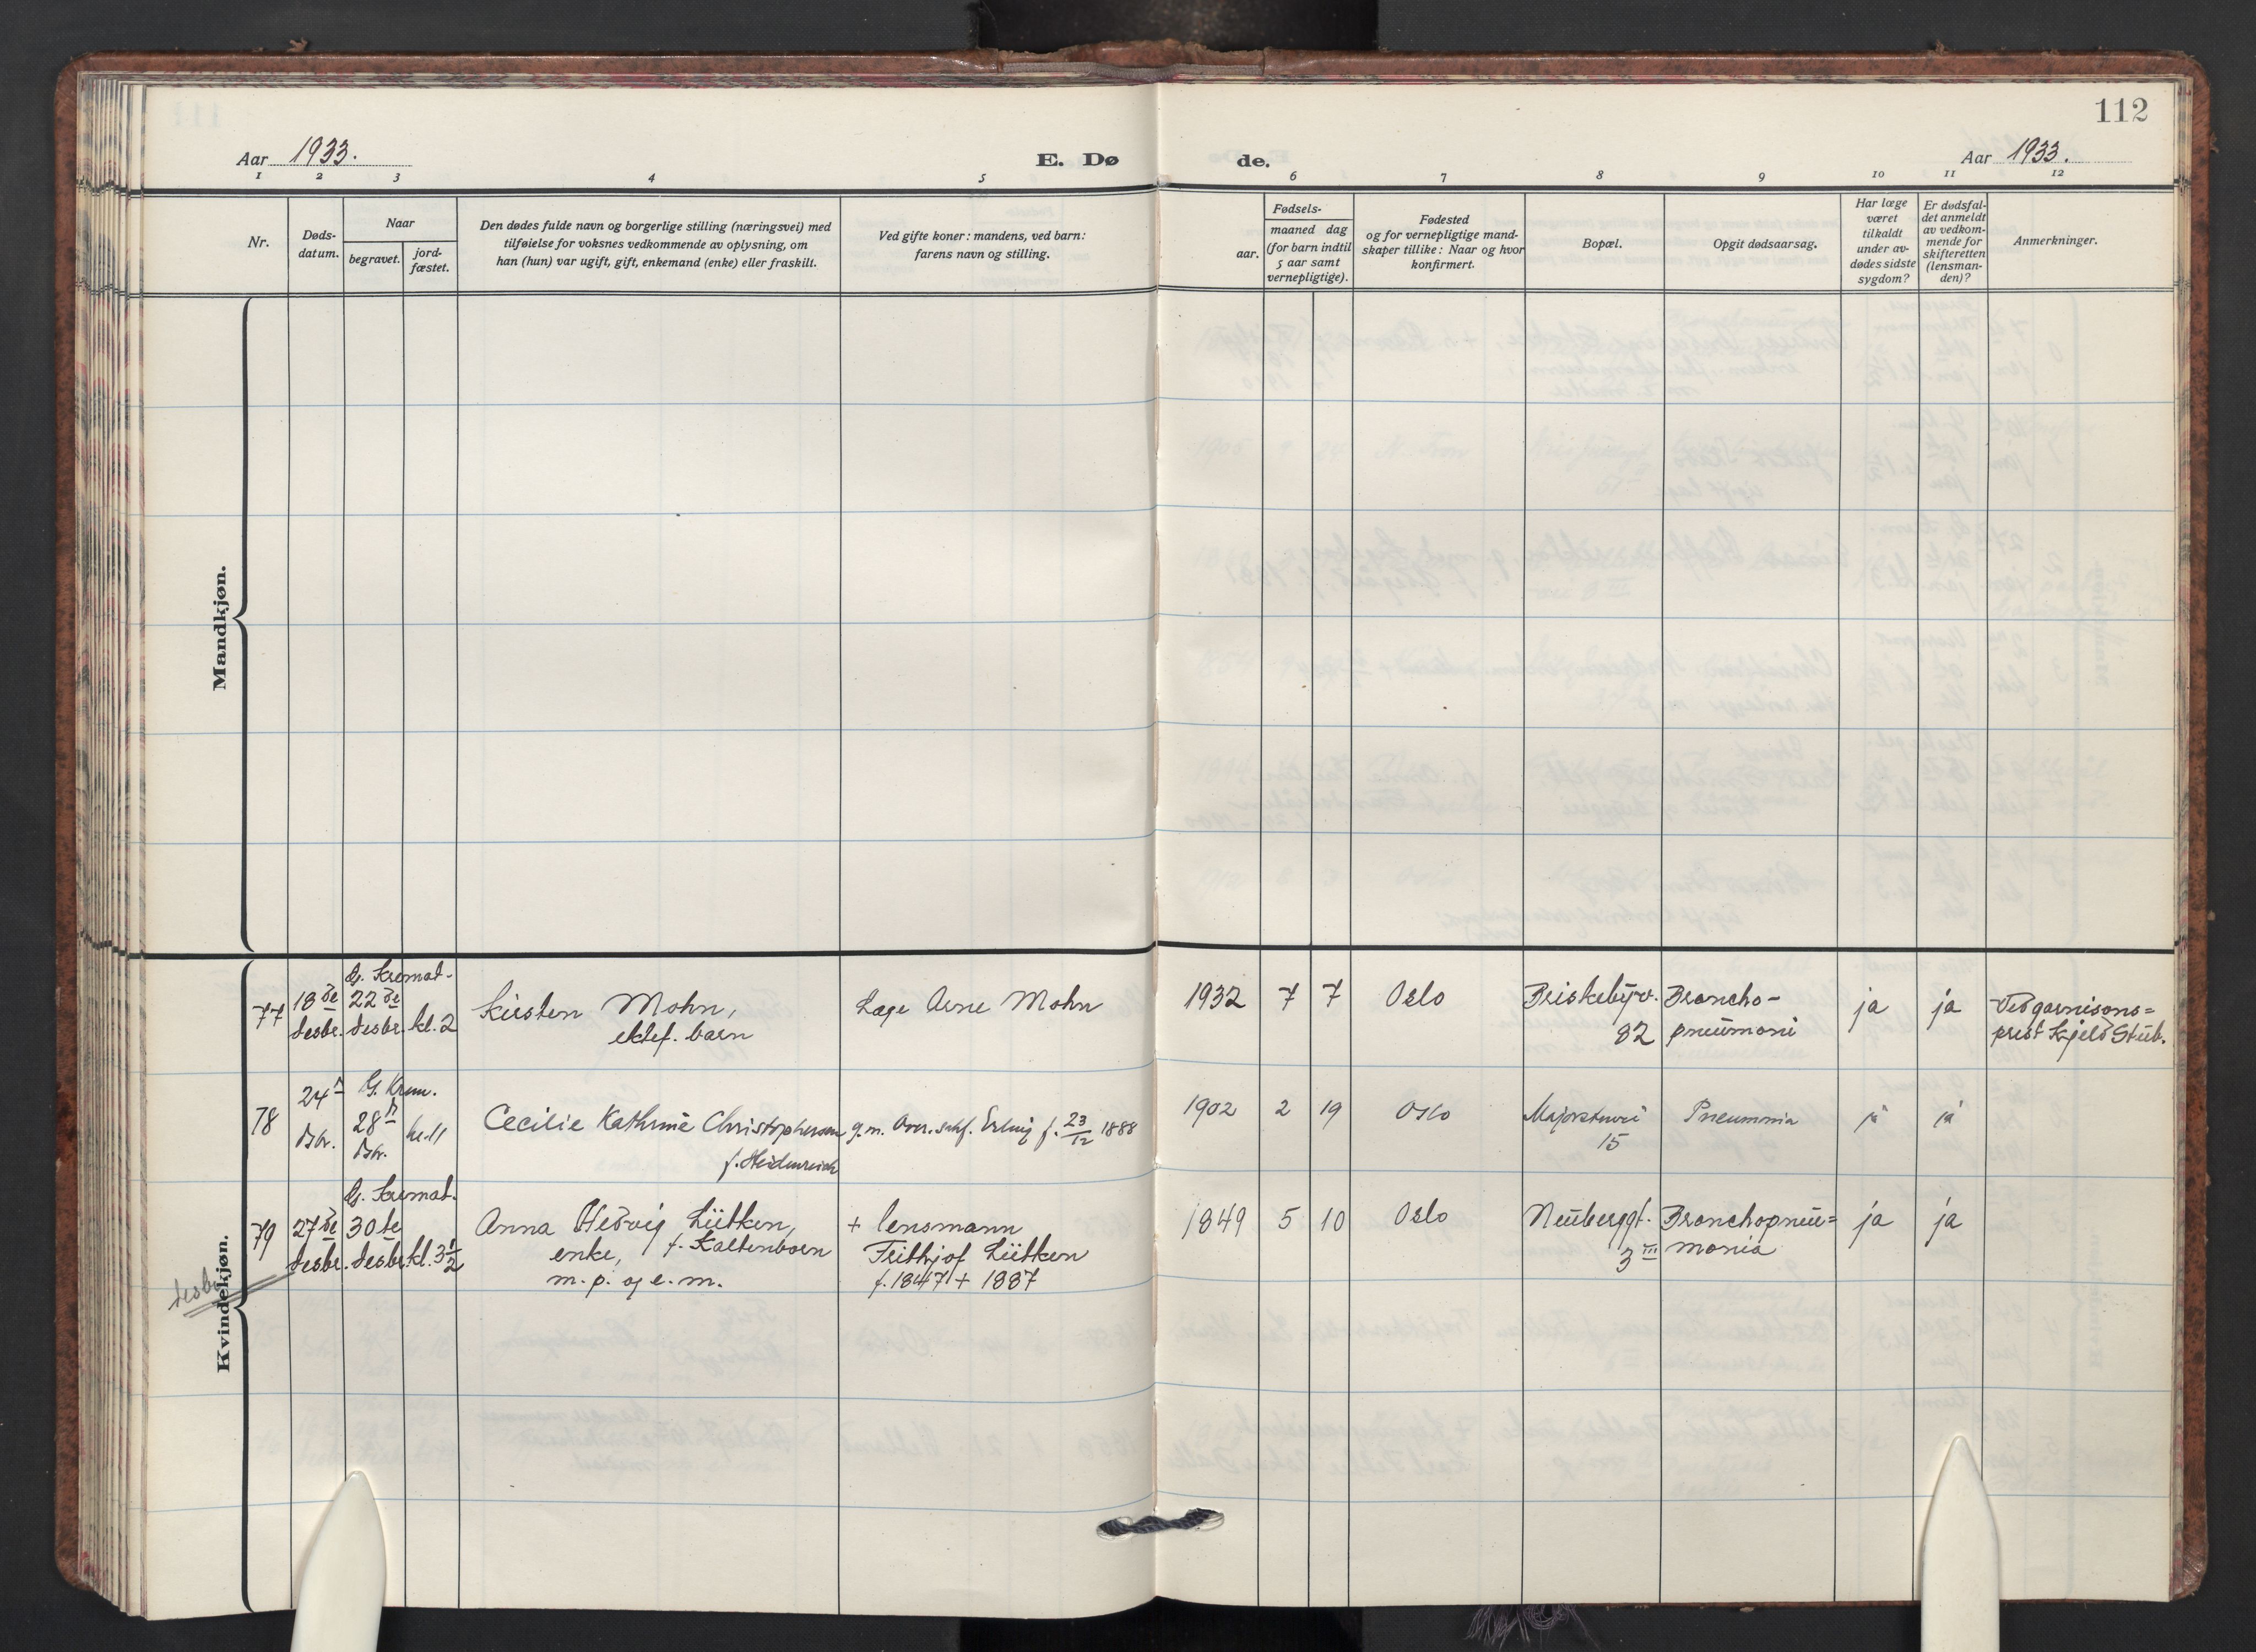 112
Aar 1933.
E. Dø
de.
Aar 1933.
1 2 3 4 5 6 7 8 9 10 11 12
Nr.
Døds-
datum.
Naar
begravet.
jord-
fæstet.
Den dødes fulde navn og borgerlige stilling (næringsvei) med
tilføielse for voksnes vedkommende av oplysning, om
han (hun) var ugift, gift, enkemand (enke) eller fraskilt.
Ved gifte koner: mandens, ved barn:
farens navn og stilling.
Fødsels-
aar.
maaned dag
(for barn indtil
5 aar samt
vernepligtige).
Fødested
og for vernepligtige mand-
skaper tillike: Naar og hvor
konfirmert.
Bopæl.
Opgit dødsaarsag.
Har læge
været
tilkaldt
under av-
dødes sidste
sygdom?
Er dødsfal-
det anmeldt
av vedkom-
mende for
skifteretten
(lensman-
den)?
Anmerkninger.
Mandkjøn.
Kvindekjøn.
77
18de
desbr.
G. Kremat-
22de
desbr.
kl. 2
Kirsten Mohn,
ektef. barn
Læge Arne Mohn
1932 7 7 Oslo
Briskebyv.
82
Broncho-
pneumoni
ja ja
Ved garnisons=
prest Kjeld Stub.
78
24
Dsbr.
G. Krem.
28
Dsbr.
kl. 11
Cecilie Kathrine Christophersen
f. Heidenreich
g. m. Overr.sakf. Erling f. 23/12 1888
1902 2 19 Oslo
Majorstuvei
15
Pneumonia
ja ja
79
27de
desbr.
G. Kremat.
30te
desbr.
kl. 3 1/2
Anna Hedvig Lütken,
enke, f. Kaltenborn
m. p. og e. m.
+ lensmann
Frithjof Lütken
f. 1847 + 1887
1849 5 10 Oslo
Neuberggt.
3 III
Bronchopneu=
monia
ja ja
desbr